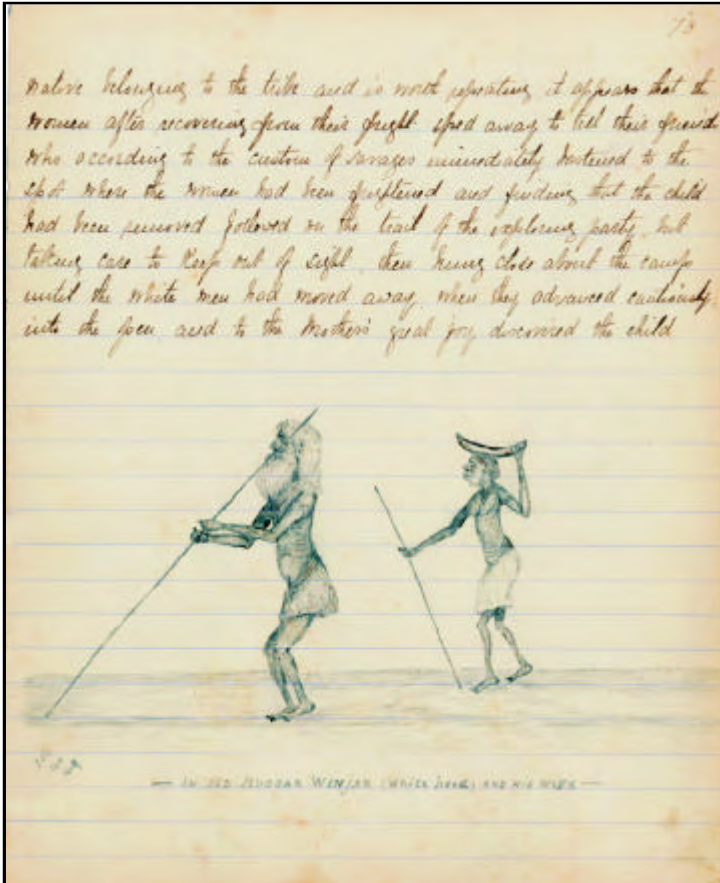 73
native belonging to the tribe and is worth repeating it appears that the
women after recovering from their fright sped away to tell their friends
who according to the custom of savages immediately hastened to the
spot where the women had been frightened and finding that the child
had been removed followed on the trail of the exploring party. but
taking care to keep out of sight. then hung close about the camp
until the white men had moved away, when they advanced cautiously
into the open and to the Mother's great joy discovered the child
MUDDAR WINJAR (WHITE HEAD) AND HIS WIFE